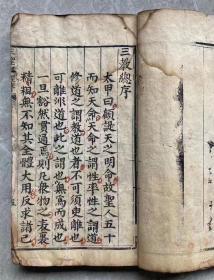 三教總序
太甲曰顧諟天之明命故聖人五十
而知天命天命之謂性率性之謂道
修道之謂教道也者不可須臾離也
可離非道也此之謂無為而成也
一旦豁然貫通焉則凡衆物之表裏
精粗無不知其全體大用反求諸己